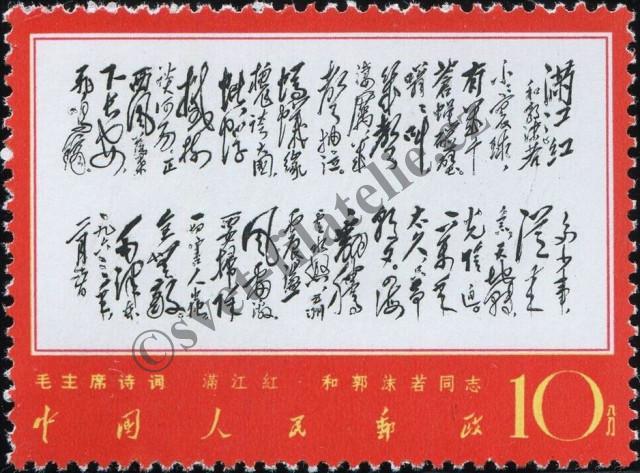 满江红
和郭沫若
小小寰球,
有几个
苍蝇碰壁。
嗡嗡叫,
几声
凄厉,几
声抽泣。
蚂蚁缘
槐夸大国,
蚍蜉
撼树
谈何易。正
西风落叶
下长安,
飞鸣镝。
多少事,
从来
急;天地转,
光阴迫。
一万年
太久,只争
朝夕。四海
翻腾
云水怒,五洲
震荡
风雷激。
要扫除
一切害人虫,
全无敌。
毛泽东
一九六三年
毛主席诗词 满江红 和郭沫若同志
中国人民邮政 10八分
©svet-filatelie.cz